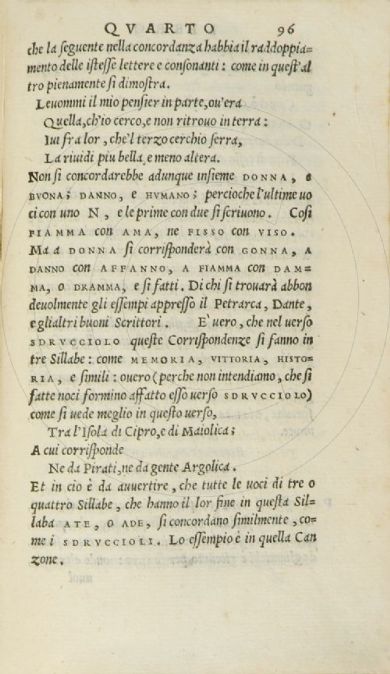 QVARTO 96
che la seguente nella concordanza habbia il raddoppia=
mento delle istesse lettere e consonanti: come in quest'al
tro pienamente si dimostra.
Leuommi il mio pensier in parte, ou'era
Quella, ch'io cerco, e non ritrouo in terra:
Iui fra lor, che'l terzo cerchio serra,
La riuidi piu bella, e meno altera.
Non si concordarebbe adunque insieme DONNA, e
BVONA; DANNO, e HVMANO; percioche l'ultime uo
ci con uno N, e le prime con due si scriuono. Cosi
FIAMMA con AMA, ne FISSO con VISO.
Ma a DONNA si corrisponderà con GONNA, a
DANNO con AFFANNO, a FIAMMA con DAM=
MA, o DRAMMA, e si fatti. Di chi si trouarà abbon
deuolmente gli essempi appresso il Petrarca, Dante,
e gli altri buoni Scrittori. E' uero, che nel uerso
SDRVCCIOLO queste Corrispondenze si fanno in
tre Sillabe: come MEMORIA, VITTORIA, HISTO-
RIA, e simili: ouero (perche non intendiamo, che si
fatte noci formino affatto esso uerso SDRVCCIOLO)
come si uede meglio in questo uerso,
Tra l'Isola di Cipro, e di Maiolica;
A cui corrisponde
Ne da Pirati, ne da gente Argolica.
Et in cio è da auuertire, che tutte le uoci di tre o
quattro Sillabe, che hanno il lor fine in questa Sil-
laba ATE, o ADE, si concordano similmente, co-
me i SDRVCCIOLI. Lo essempio è in quella Can
zone.